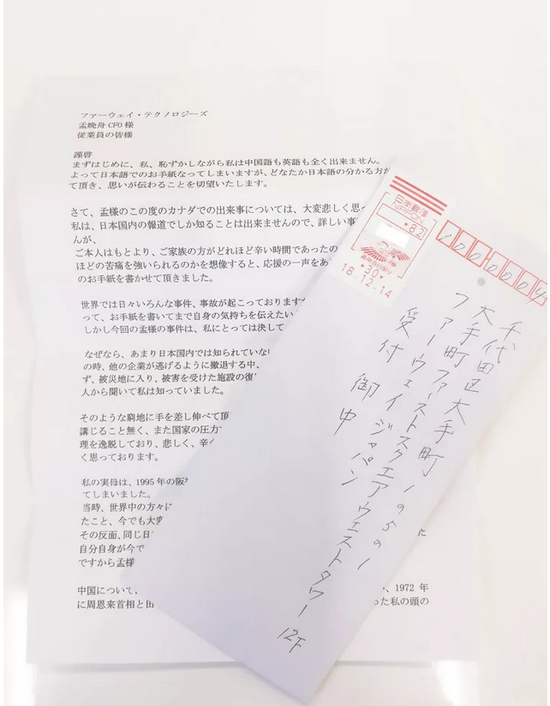 ファーウェイ・テクノロジーズ
孟晩舟 CFO 様
従業員の皆様
謹啓
まずはじめに、私、恥ずかしながら私は中国語も英語も全く出来ません。
よって日本語でのお手紙なってしまいますが、どなたか日本語の分かる方が
て頂き、思いが伝わることを切望いたします。
さて、孟様のこの度のカナダでの出来事については、大変悲しく思っ
私は、日本国内の報道でしか知ることは出来ませんので、詳しい事
んが、
ご本人はもとより、ご家族の方がどれほど辛い時間であったの
ほどの苦痛を強いられるのかを想像すると、応援の一声をあ
のお手紙を書かせて頂きました。
世界では日々いろんな事件、事故が起こっております
って、お手紙を書いてまで自身の気持ちを伝えたい
しかし今回の孟様の事件は、私にとっては決して
なぜなら、あまり日本国内では知られていない
の時、他の企業が逃げるように撤退する中、
ず、被災地に入り、被害を受けた施設の復
人から聞いて私は知っていました。
そのような窮地に手を差し伸べて頂
講じること無く、また国家の圧力
理を逸脱しており、悲しく、辛
く思っております。
私の実母は、1995 年の阪
てしまいました。
当時、世界中の方々に
たこと、今でも大変
その反面、同じ日
自分自身が今で
ですから孟様
中国について、
、1972 年
に周恩来首相と
った私の頭の
日本郵便
NIPPON
82
30
18.12.14
1000004
千代田区大手町1の5の1
大手町ファーストスクエアウエストタワー12F
ファーウェイジャパン
受付 御中